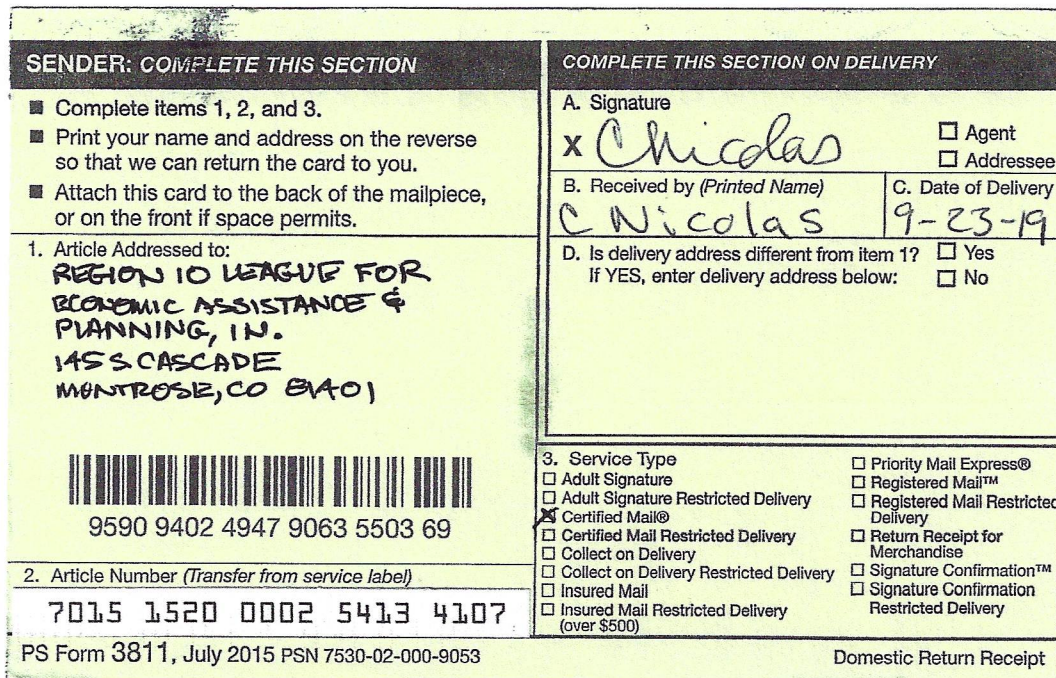 SENDER: COMPLETE THIS SECTION
■ Complete items 1, 2, and 3.
■ Print your name and address on the reverse
so that we can return the card to you.
■ Attach this card to the back of the mailpiece,
or on the front if space permits.
1. Article Addressed to:
REGION 10 LEAGUE FOR
ECONOMIC ASSISTANCE &
PLANNING, IN.
145 S. CASCADE
MONTROSE, CO 81401
9590 9402 4947 9063 5503 69
2. Article Number (Transfer from service label)
7015 1520 0002 5413 4107
COMPLETE THIS SECTION ON DELIVERY
A. Signature
X CNicolas
☐ Agent
☐ Addressee
B. Received by (Printed Name)
C Nicolas
C. Date of Delivery
9-23-19
D. Is delivery address different from item 1? ☐ Yes
If YES, enter delivery address below: ☐ No
3. Service Type
☐ Adult Signature
☐ Adult Signature Restricted Delivery
☒ Certified Mail®
☐ Certified Mail Restricted Delivery
☐ Collect on Delivery
☐ Collect on Delivery Restricted Delivery
☐ Insured Mail
☐ Insured Mail Restricted Delivery
(over $500)
☐ Priority Mail Express®
☐ Registered Mail™
☐ Registered Mail Restricted
Delivery
☐ Return Receipt for
Merchandise
☐ Signature Confirmation™
☐ Signature Confirmation
Restricted Delivery
PS Form 3811, July 2015 PSN 7530-02-000-9053
Domestic Return Receipt